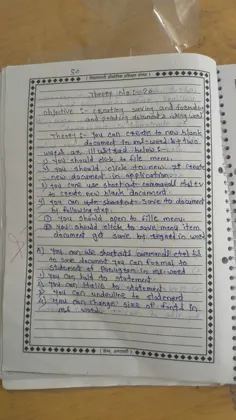 20
Theory No:-20
objective :- creating saving and formating
and printing documents using word
Theory :- You can create to new blank
document in ms-word by two
ways are illustrated below :-
i) You should click to file menu
ii) You should click to new or create
new document in application.
iii) You can use shortcut command ctrl+N
to create new blank document
iv) You can save document
by following step.
i) You should open to file menu.
ii) You should click to save menu item
document get save by in word
3) You can use shortcut command ctrl+s
to save document you can format to
statement of Paragram in ms-word
i) You can bold to statement
ii) You can italic to statement
iii) You can underline to statement
iv) You can change size of fonts in
ms-word.